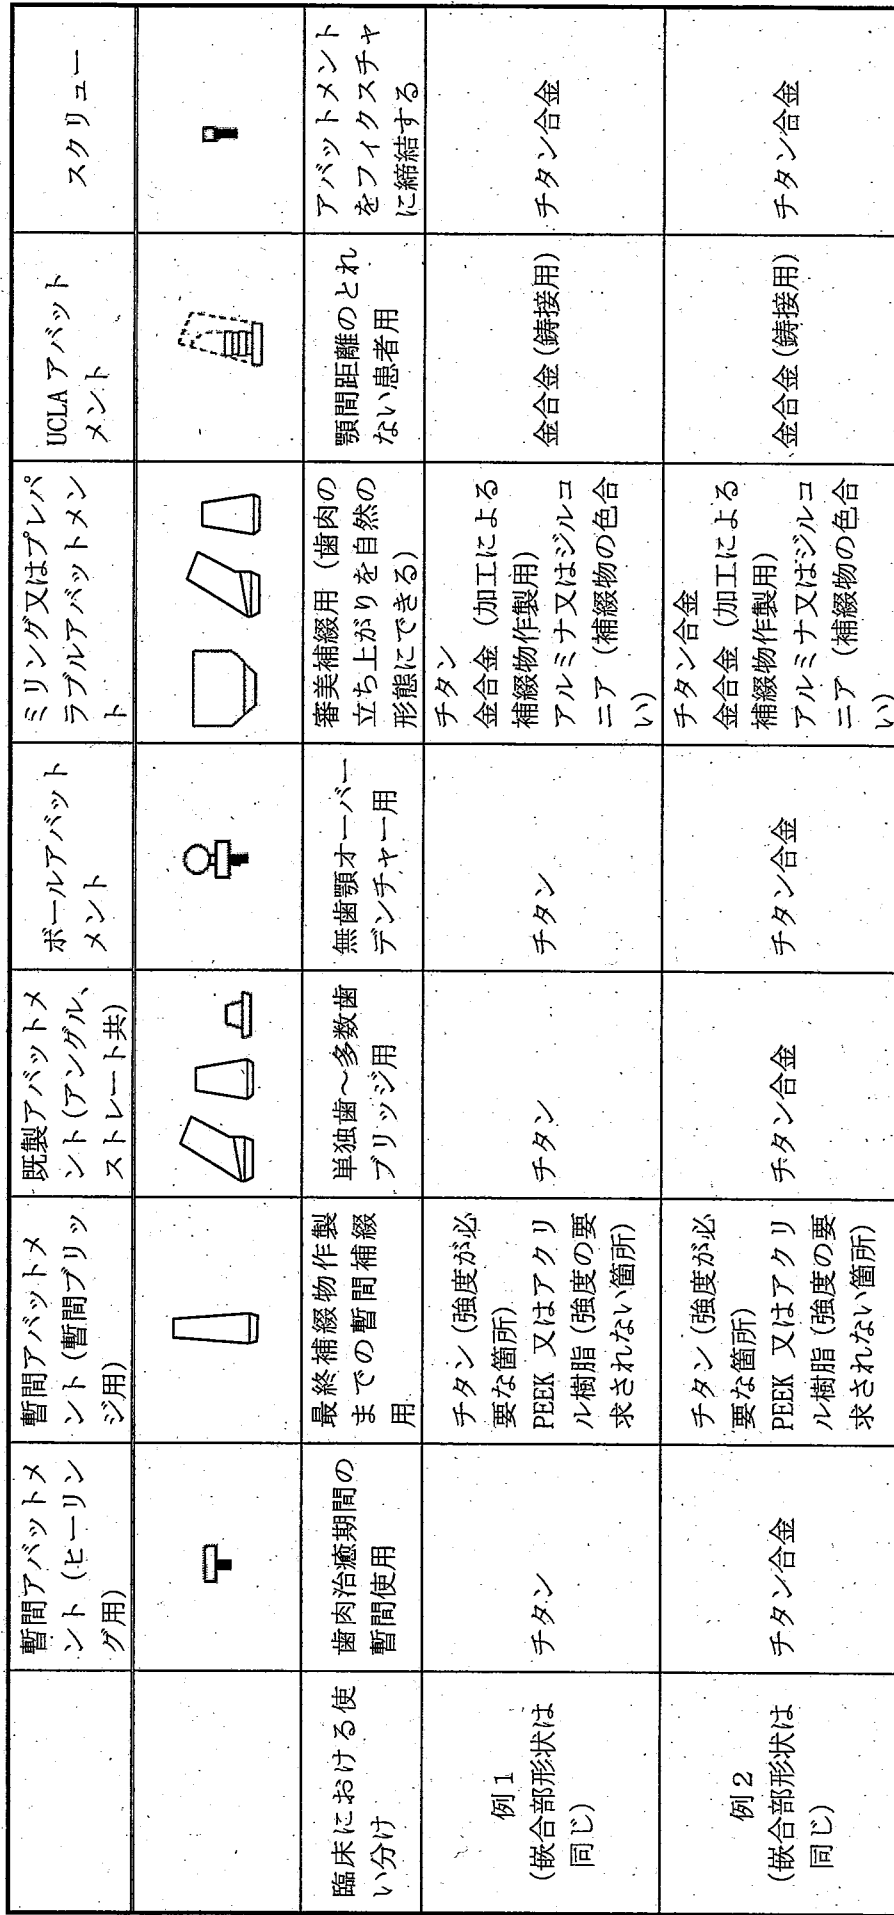 暫間アバットメ
ント(ヒーリン
グ用)
暫間アバットメ
ント(暫間ブリッ
ジ用)
既製アバットメ
ント(アングル、
ストレート共)
ボールアバット
メント
ミリング又はプレパ
ラブルアバットメン
ト
UCLA アバット
メント
スクリュー
臨床における使
い分け
歯肉治癒期間の
暫間使用
最終補綴物作製
までの暫間補綴
用
単独歯～多数歯
ブリッジ用
無歯顎オーバー
デンチャー用
審美補綴用（歯肉の
立ち上がりを自然の
形態にできる）
顎間距離のとれ
ない患者用
アバットメント
をフィクスチャ
に締結する
例１
(嵌合部形状は
同じ)
チタン
チタン(強度が必
要な箇所)
PEEK 又はアクリ
ル樹脂(強度の要
求されない箇所)
チタン
チタン
チタン
金合金（加工による
補綴物作製用）
アルミナ又はジルコ
ニア（補綴物の色合
い）
金合金(鋳接用)
チタン合金
例２
(嵌合部形状は
同じ)
チタン合金
チタン(強度が必
要な箇所)
PEEK 又はアクリ
ル樹脂(強度の要
求されない箇所)
チタン合金
チタン合金
チタン合金
金合金（加工による
補綴物作製用）
アルミナ又はジルコ
ニア（補綴物の色合
い）
金合金(鋳接用)
チタン合金